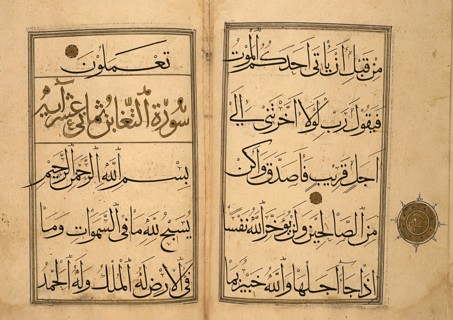 من قبل أن يأتي أحدكم الموت
فيقول رب لولا أخرتني إلى
أجل قريب فأصدق وأكن
من الصالحين ولن يؤخر الله نفسا
إذا جاء أجلها والله خبير بما
تعملون
سورة التغابن ثماني عشر آية
بسم الله الرحمن الرحيم
يسبح لله ما في السموات وما
في الأرض له الملك وله الحمد